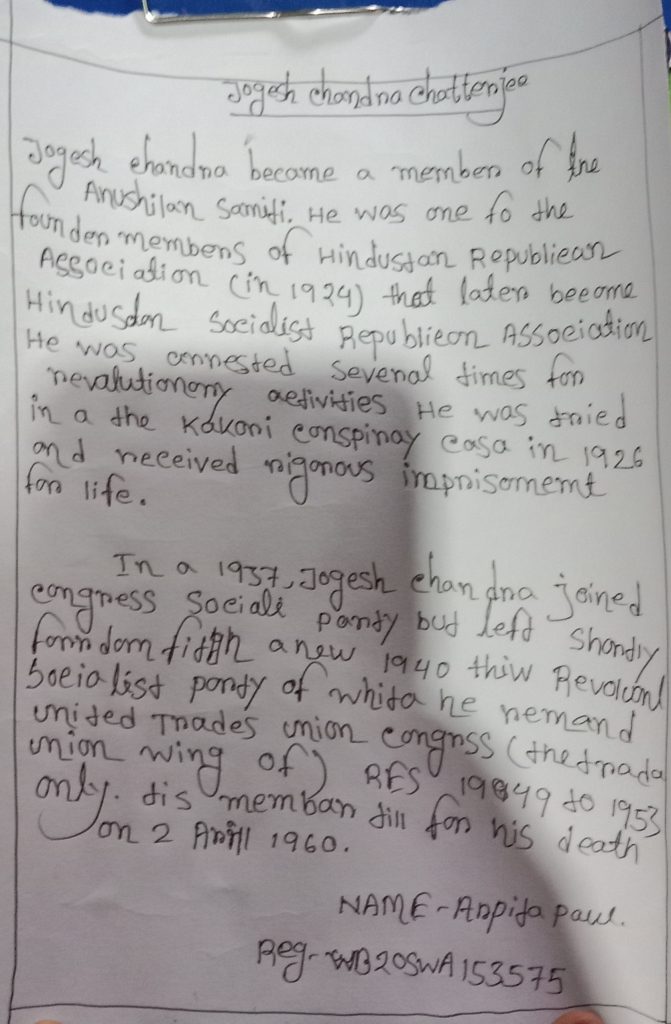 Jogesh chandra chatterjee
Jogesh chandra became a member of the
Anushilan Samiti. He was one fo the
founder members of Hindustan Republican
Association (in 1924) that later become
Hindusdan Socialist Republicon Association
He was arrested several times for
revalutionary activities He was tried
in a the Kakori conspiray casa in 1926
and received rigorous imprisoment
for life.
In a 1937, Jogesh chandra joined
congress Sociale party but left shortly
a new 1940 thiw
Socialist party of whita he remand
united Trades union congrss (the trada
union wing of) RFS 19849 to 1953
only. tis membar till for his death
on 2 April 1960.
NAME-Arpita paul.
Reg-WB20SWA153575